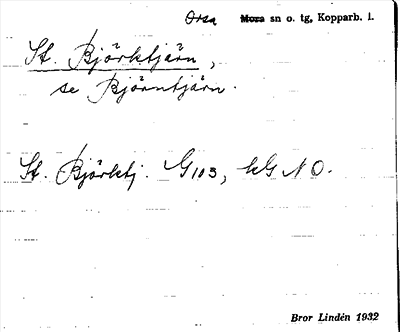 Orsa Mora sn o. tg, Kopparb. l.
St. Björktjärn,
se Björntjärn.
St. Björktj. G103, kG NO.
Bror Lindén 1932